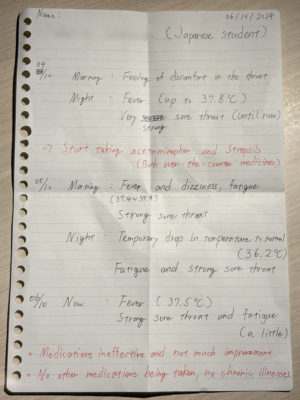 Name:
06/10/2024
(Japanese student)
04/10 Morning : Feeling of discomfort in the throat
Night : Fever (up to 37.8℃)
Very sore throat (until now)
strong
⇒ Start taking acetaminophen and Strepsils
(Both over-the-counter medicines)
05/10 Morning : Fever and dizziness, fatigue
(37.4~37.9)
Strong sore throat
Night : Temporary drop in temperature to normal
(36.2℃)
Fatigue and strong sore throat
06/10 Now : Fever (37.5℃)
Strong sore throat and fatigue
(a little)
• Medications ineffective and not much improvement
• No other medications being taken, no chronic illnesses